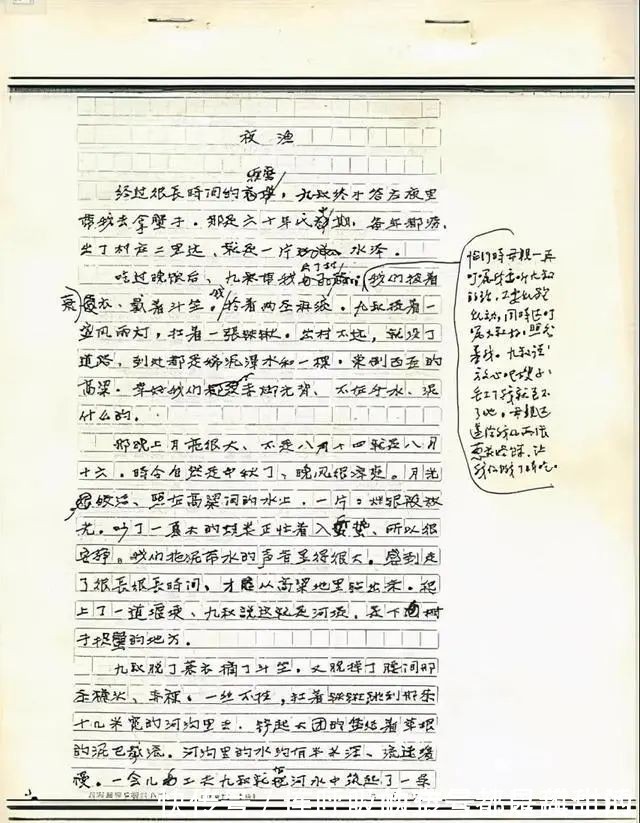 夜渔
经过很长时间的
央求,九叔终于答应夜里
带我去拿蟹子。那是六十年代中期,每年都涝,
出了村庄二里远,就是一片水泽。
吃过晚饭后,九叔带我出了村
我们披着
蓑衣、戴着斗笠。我拎着两条麻袋。九叔提着一
盏风雨灯,扛着一张铁锹。出村不远,就没了
道路,到处都是稀泥浑水和一棵棵东倒西歪的
高粱。幸好我们都赤脚光背、不在乎水、泥
什么的。
那晚上月亮很大、不是八月十四就是八月
十六。时令自然是中秋了,晚风很凉爽。月光
皎洁、照在高粱间的水上,一片片烂银般放
光。吵了一夏天的蛙类正忙着入蛰,所以很
安静。我们拖泥带水的声音显得很大。感到走
了很长很长时间,才从高粱地里钻出来。爬
上了一道堰埂、九叔说这就是河堤,是下
捉蟹的地方。
九叔脱了蓑衣摘了斗笠,又脱掉了腰间那
条裤头、赤裸裸一丝不挂,扛着铁锹跳到那条
十几米宽的河沟里去,铲起大团的盘结着草根
的泥巴截流。河沟里的水约有半米深、流速缓
慢。一会儿工夫九叔就在河水中筑起了一条
临行时母亲一再
叮嘱我要听九叔
的话,不要乱跑
乱动,同时还叮
嘱九叔,照看
着我。九叔说:
放心吧嫂子,
丢了我就丢不
了他。母亲还
递给我们两张
葱花烙饼,让
我们饿了时吃。